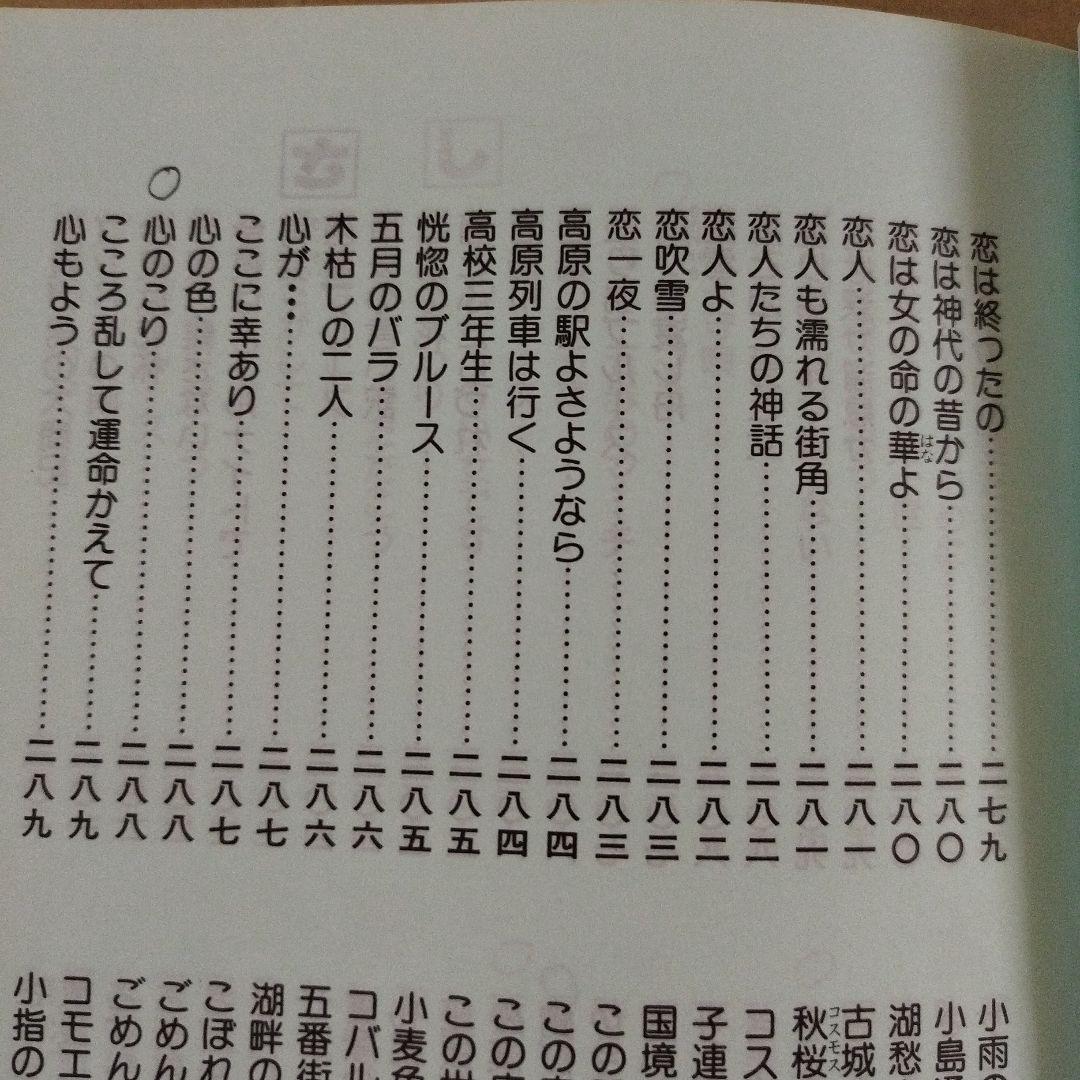 恋は終ったの……二七九
恋は神代の昔から……二八〇
恋は女の命の華よ……二八〇
はな
恋人……二八一
恋人も濡れる街角……二八一
恋人たちの神話……二八二
恋人よ……二八二
恋吹雪……二八三
恋一夜……二八三
高原の駅よさようなら……二八四
高原列車は行く……二八四
高校三年生……二八五
恍惚のブルース……二八五
五月のバラ……二八六
木枯しの二人……二八六
心が………二八七
ここに幸あり……二八七
心の色……二八八
心のこり……二八八
こころ乱して運命かえて……二八九
心もよう……二八九
小雨の
小島
湖愁
古城
秋桜
コスモス
コス
子連
国境
この
この
この
この
小麦色
コバル
五番街
湖畔の
こぼれ
ごめん
ごめん
コモエ
小指の